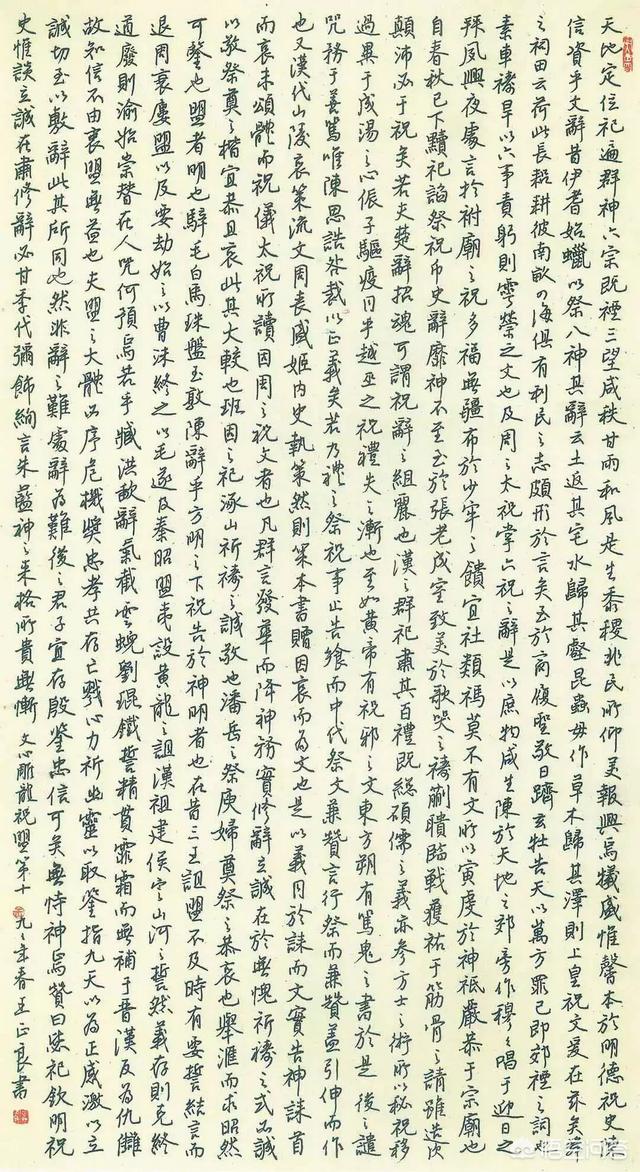 天地定位祀遍群神六宗既禋三望咸秩甘雨和風是生黍稷兆民所仰美報興焉犧盛惟馨本於明德祝史陳
信資乎文辭昔伊耆始蠟以祭八神其辭云土返其宅水歸其壑昆蟲毋作草木歸其澤則上皇祝文爰在茲矣舜
之祠田云荷此長耜耕彼南畝四海俱有利民之志頗形於言矣至於商履聖敬日躋玄牡告天以萬方罪己即郊禋之詞也
素車禱旱以六事責躬則雩禜之文也及周之太祝掌六祝之辭是以庶物咸生陳於天地之郊旁作穆穆唱于迎日之
拜夙興夜處言於祔廟之祝多福無疆布於少牢之饋宜社類禡莫不有文所以寅虔於神祇嚴恭于宗廟也
自春秋已下黷祀諂祭祝幣史辭靡神不至至於張老成室致美於歌哭之禱蒯聵臨戰獲祐于筋骨之請雖造次
顛沛必于祝矣若夫楚辭招魂可謂祝辭之組麗也漢之群祀肅其百禮既總碩儒之義亦參方士之術所以秘祝移
過異于成湯之心侲子驅疫同乎越巫之祝禮失之漸也至如黃帝有祝邪之文東方朔有罵鬼之書於是後之譴
咒務于善罵唯陳思誥咎裁以正義矣若乃禮之祭祝事止告饗而中代祭文兼贊言行祭而兼贊蓋引伸而作
也又漢代山陵哀策流文周喪盛姬內史執策然則策本書贈因哀而為文也是以義同於誄而文實告神誄首
而哀末頌體而祝儀太祝所讀因周之祝文者也凡群言發華而降神務實修辭立誠在於無愧祈禱之式必誠
以敬祭奠之楷宜恭且哀此其大較也班固之祀涿山祈禱之誠敬也潘岳之祭庾婦奠祭之恭哀也舉滙而求昭然
可鑒也盟者明也騂毛白馬珠盤玉敦陳辭乎方明之下祝告於神明者也在昔三王詛盟不及時有要誓結言而
退周衰屢盟以及要劫始之以曹沫終之以毛遂及秦昭盟夷設黃龍之詛漢祖建侯定山河之誓然義存則克終
道廢則渝始崇替在人咒何預焉若乎臧洪歃辭氣截雲蜺劉琨鐵誓精貫霏霜而無補于晉漢反為仇讎
故知信不由衷盟無益也夫盟之大體必序危機獎忠孝共存亡戮心力祈幽靈以取鑒指九天以為正感激以立
誠切至以敷辭此其所同也然非辭之難處辭為難後之君子宜存殷鑒忠信可矣無恃神焉贊曰毖祀欽明祝
史惟談立誠在肅修辭必甘季代彌飾絢言朱藍神之來格所貴無慚 文心雕龍祝盟第十 九二年春王正良書